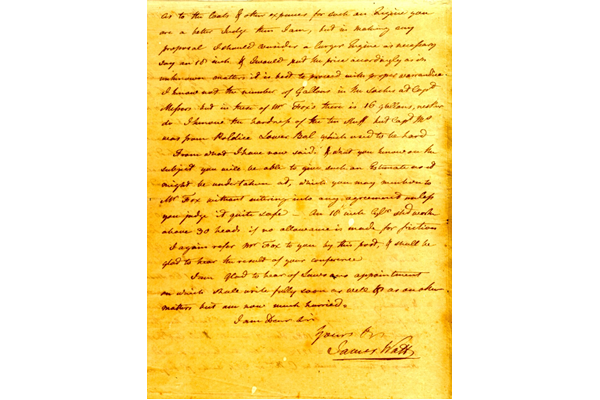 as to the Coals & other expences for such an Engine you
are a better Judge than I am, but in making any
proposal I should consider a larger Engine as necessary
say an 18 inch & would put the price accordingly as in
unknown matters it is best to proceed with proper
I know not the number of Gallons in the Sacks at Capt
but in them of Mr Fox's there is 16 gallons, neither
do I know the hardness of the tin stuff but Capt
was from Poldice Lower Bal which used to be hard
From what I have now said & what you know on the
subject you will be able to give such an Estimate as it
might be undertaken at, which you may mention to
Mr Fox without entering into any agreement unless
you judge it quite safe — An 18 inch shd work
above 30 heads if no allowance is made for friction
I again refer Mr Fox to you by this post, & shall be
glad to hear the result of your conference
I am glad to hear of appointment
on which shall write fully soon as well as on other
matters but am now much hurried.
I am Dear Sir
Yours &c
James Watt